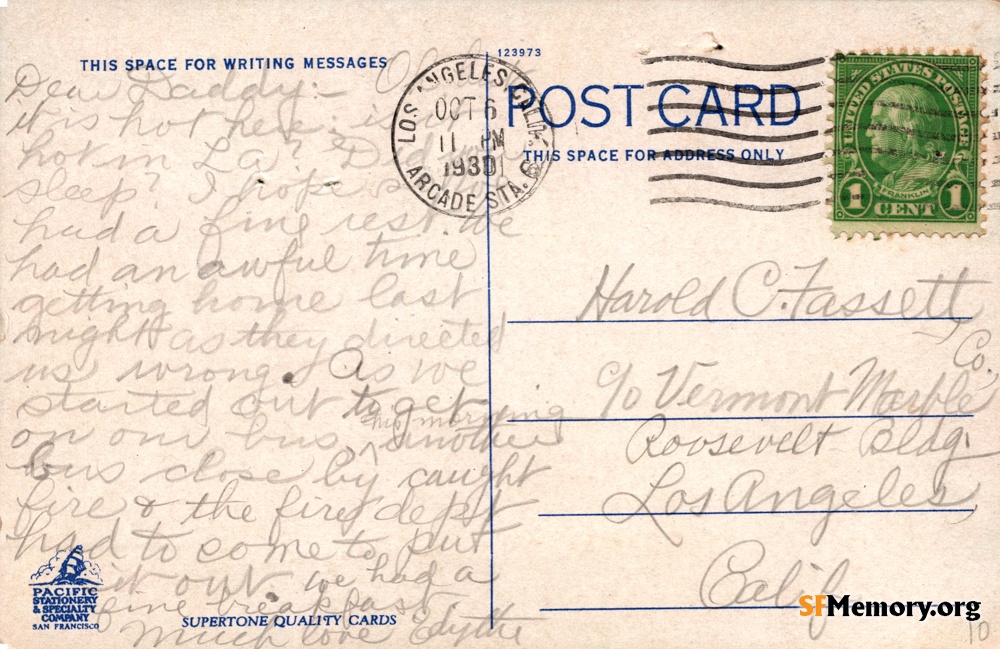 123973
THIS SPACE FOR WRITING MESSAGES
POST CARD
THIS SPACE FOR ADDRESS ONLY
LOS ANGELES, CALIF.
OCT 6
11 PM
1930
ARCADE STA.
UNITED STATES POSTAGE
FRANKLIN
1 CENT 1
Dear Daddy:- Oh
it is hot here is it
hot in La? Did you
sleep? I hope
had a fine rest. We
had an awful time
getting home last
night as they directed
us wrong. As we
started out to get
on our bus this morning another
bus close by caught
fire & the fire dept
had to come to put
it out. we had a
fine breakfast
Much love Edythe
Harold C. Fassett
c/o Vermont Marble Co.
Roosevelt Bldg.
Los Angeles
Calif
PACIFIC
STATIONERY
& SPECIALTY
COMPANY
SAN FRANCISCO
SUPERTONE QUALITY CARDS
SFMemory.org
10